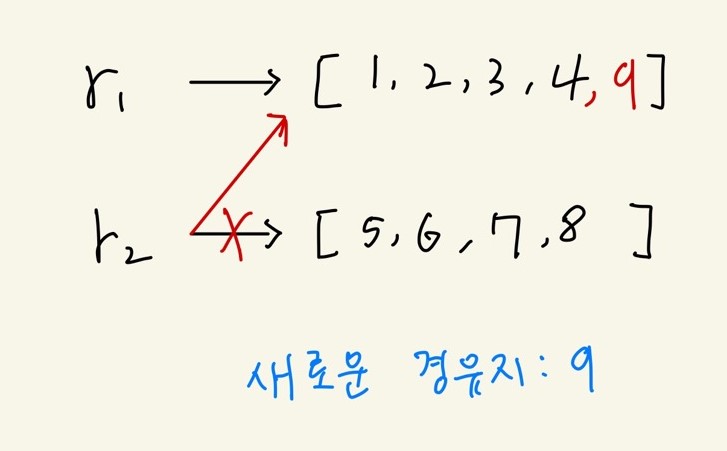 r₁ → [1, 2, 3, 4, 9]
r₂ → [5, 6, 7, 8 ]
새로운 경유지: 9